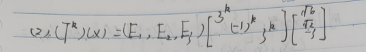 (2). (T^k)(x) = (E₁, E₂, E₃) [3^k (-1)^k 3^k] [√6 √6/3]